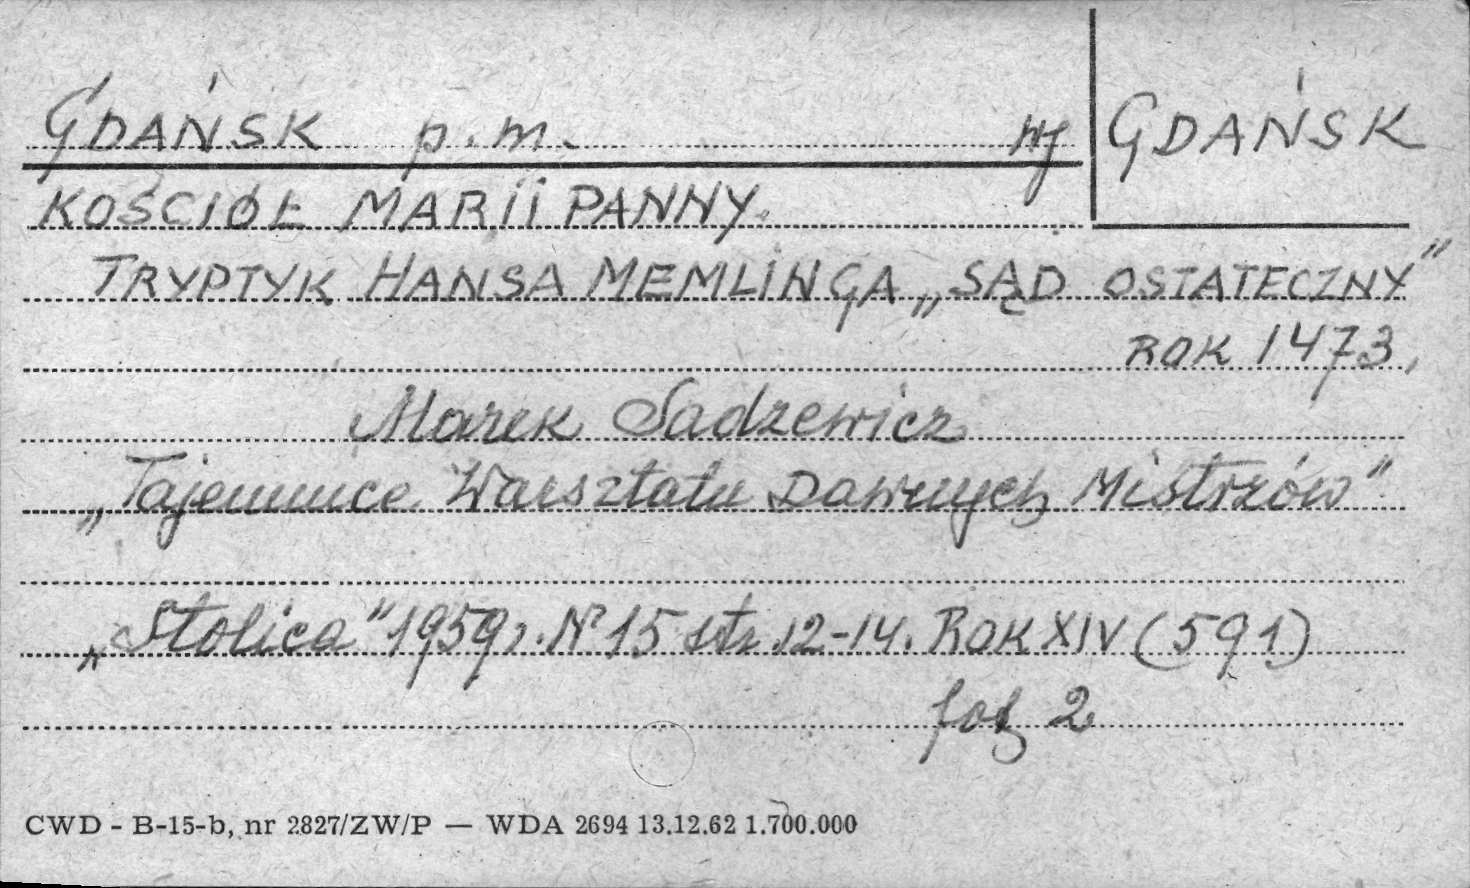 GDAŃSK p.m. wj GDAŃSK
KOŚCIÓŁ MARII PANNY.
TRYPTYK HANSA MEMLINGA „SĄD OSTATECZNY”
ROK 1473,
Marek Sadzewicz
„Tajemnice Warsztatu Dawnych Mistrzów”
„Stolica” 1959r. Nº 15 str. 12-14. ROK XIV (591)
fot 2
CWD - B-15-b, nr 2827/ZW/P — WDA 2694 13.12.62 1.700.000